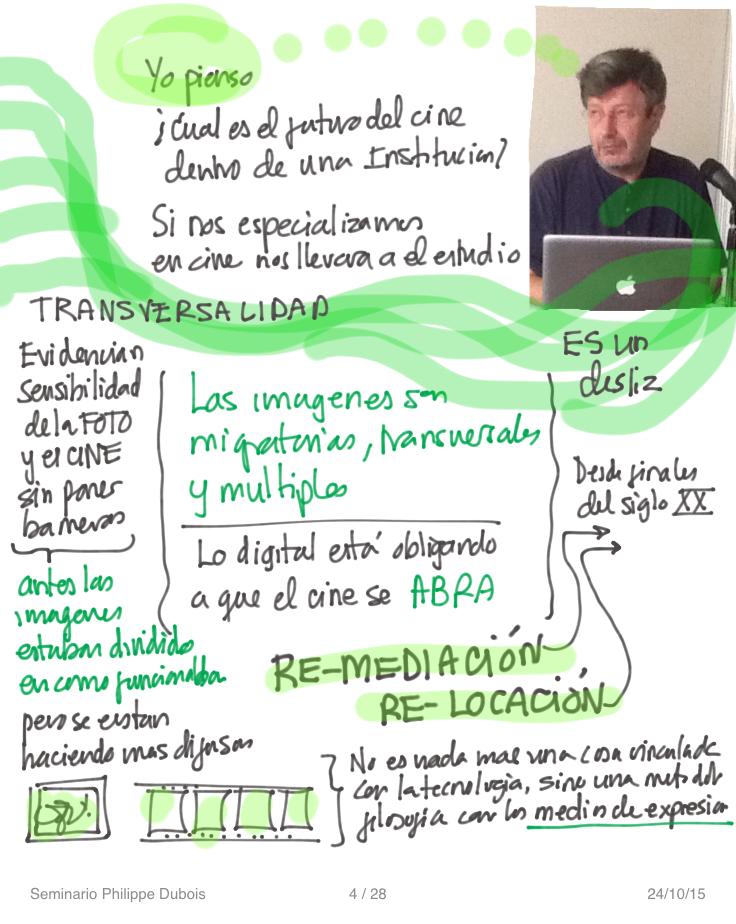 Yo pienso
¿Cual es el futuro del cine
dentro de una Institucion?
Si nos especializamos
en cine nos llevara a el estudio
TRANSVERSALIDAD
Evidencian
sensibilidad
de la FOTO
y el CINE
sin poner
barreras
antes las
imagenes
estaban dividido
en como funcionaba
pero se estan
haciendo mas difusas
Las imagenes son
migratorias, transversales
y multiples
Lo digital está obligando
a que el cine se ABRA
ES un
desliz
Desde finales
del siglo XX
RE-MEDIACIÓN
RE-LOCACIÓN
No es nada mas una cosa vinculada
con la tecnologia, sino una
filosofia con los medios de expresion
Seminario Philippe Dubois
4 / 28
24/10/15